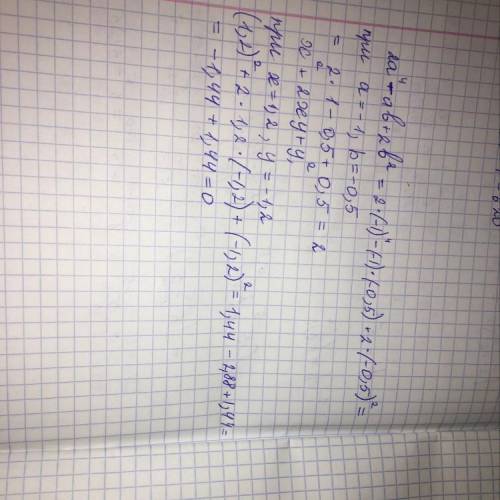 2a⁴-ab+2b²=2·(-1)⁴-(-1)·(-0,5)+2·(-0,5)²=
при a=-1, b=-0,5
=2·1-0,5+0,5=2
x²+2xy+y²,
при x=1,2, y=-1,2
(1,2)²+2·1,2·(-1,2)+(-1,2)²=1,44-2,88+1,44=
=-1,44+1,44=0